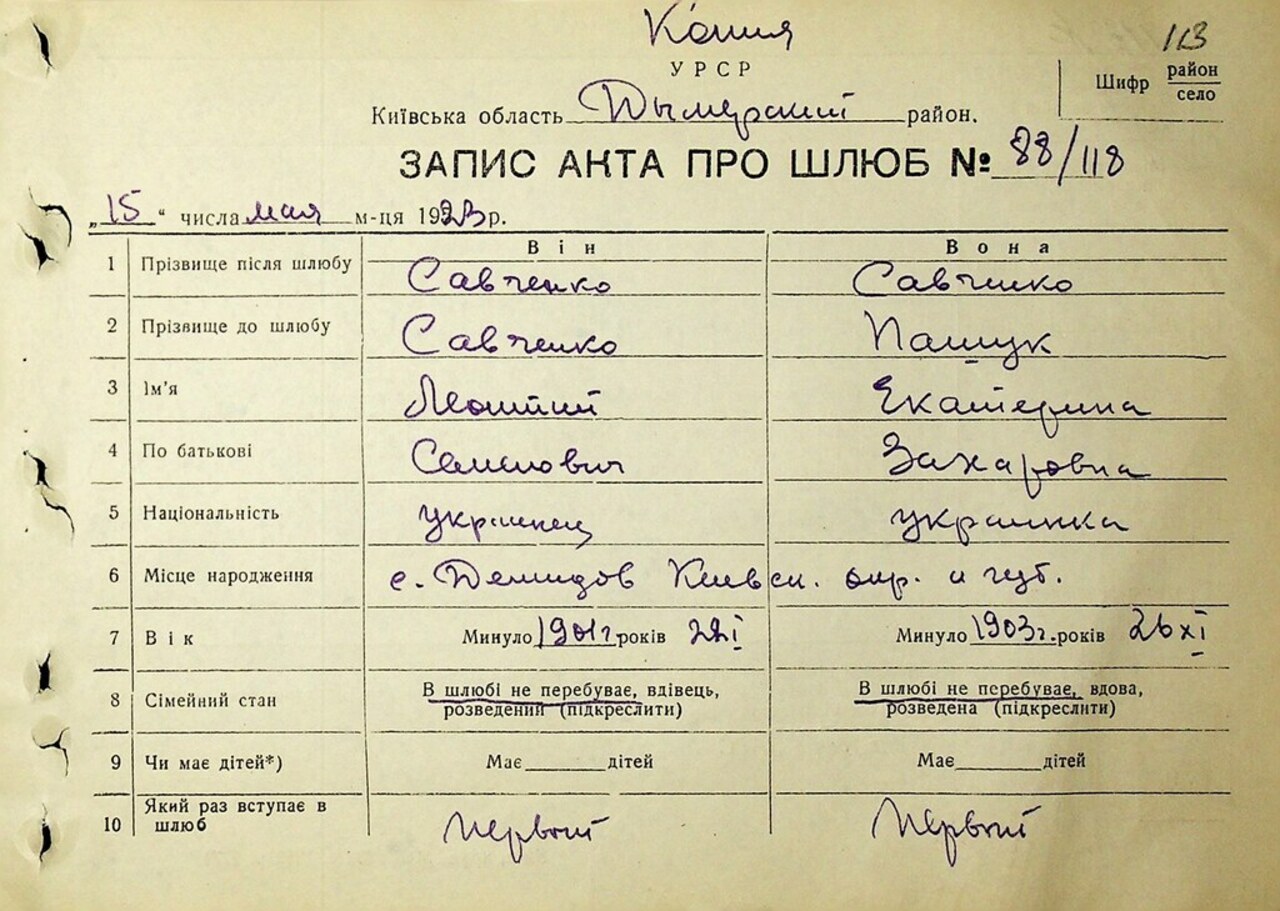 Копия
113
УРСР
Шифр район
село
Київська область Дымерский район.
ЗАПИС АКТА ПРО ШЛЮБ № 88/118
„15“ числа мая м-ця 1923р.
Він Вона
1 Прізвище після шлюбу Савченко Савченко
2 Прізвище до шлюбу Савченко Пащук
3 Ім'я Леонтий Екатерина
4 По батькові Семенович Захаровна
5 Національність украинец украинка
6 Місце народження с. Демидов Киевск. окр. и губ.
7 Вік Минуло 1901г. років 22 I Минуло 1903г. років 26 XI
8 Сімейний стан В шлюбі не перебуває, вдівець, В шлюбі не перебуває, вдова,
розведений (підкреслити) розведена (підкреслити)
9 Чи має дітей*) Має дітей Має дітей
10 Який раз вступає в
шлюб первый первый